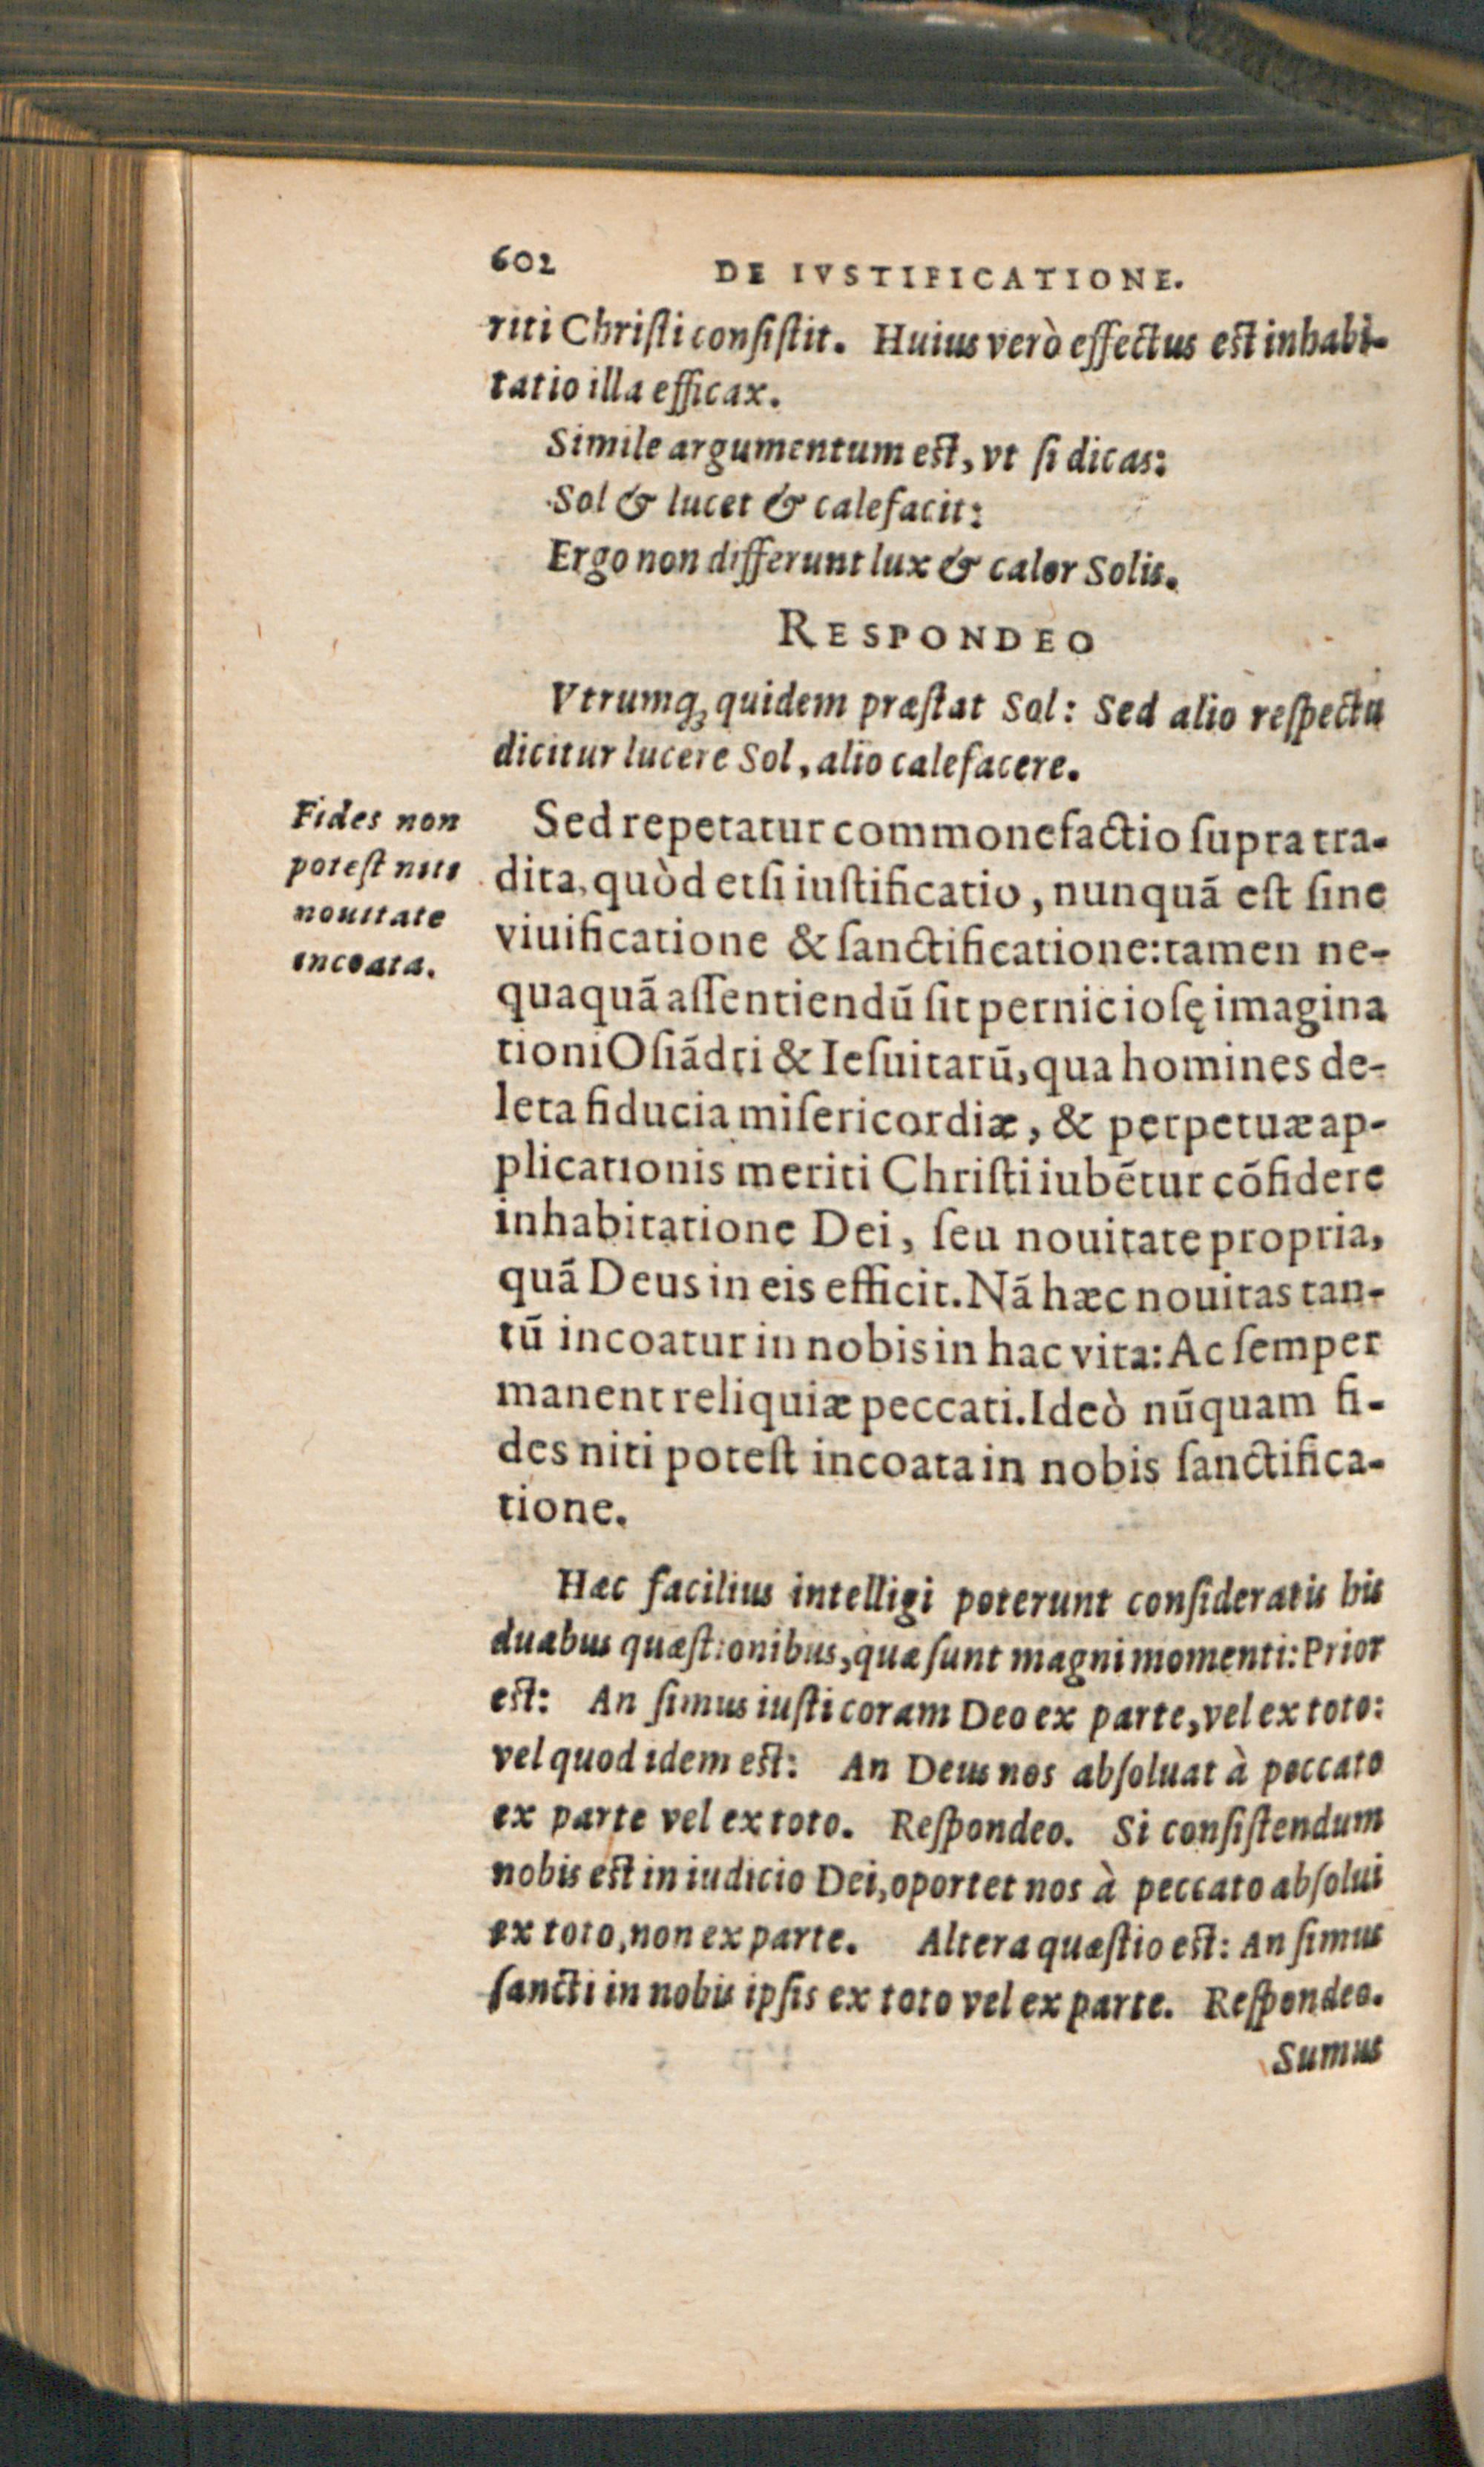 602 DE IVSTIFICATIONE.
riti Chriſti conſiſtit. Huius verò effectus est inhabi-
tatio illa efficax.
Simile argumentum est, vt ſi dicas:
Sol & lucet & calefacit:
Ergo non differunt lux & calor Solis.
RESPONDEO
Vtrumq́; quidem præſtat Sol: Sed alio reſpectu
dicitur lucere Sol, alio calefacere.
Fides non
poteſt niti
nouitate
incoata.
Sed repetatur commonefactio ſupra tra-
dita, quòd etſi iuſtificatio, nunquã eſt ſine
viuificatione & ſanctificatione: tamen ne-
quaquã aſſentiendũ ſit pernicioſę imagina
tioni Oſiãdri & Ieſuitarũ, qua homines de-
leta fiducia miſericordiæ, & perpetuæ ap-
plicationis meriti Chriſti iubẽtur cõfidere
inhabitatione Dei, ſeu nouitate propria,
quã Deus in eis efficit. Nã hæc nouitas tan-
tũ incoatur in nobis in hac vita: Ac ſemper
manent reliquiæ peccati. Ideò nũquam fi-
des niti poteſt incoata in nobis ſanctifica-
tione.
Hæc facilius intelligi poterunt conſideratis his
duabus quæſtionibus, quæ ſunt magni momenti: Prior
est: An ſimus iuſti coram Deo ex parte, vel ex toto:
vel quod idem est: An Deus nos abſoluat à peccato
ex parte vel ex toto. Reſpondeo. Si conſiſtendum
nobis est in iudicio Dei, oportet nos à peccato abſolui
ex toto, non ex parte. Altera quæſtio est: An ſimus
ſancti in nobis ipſis ex toto vel ex parte. Reſpondeo.
Sumus